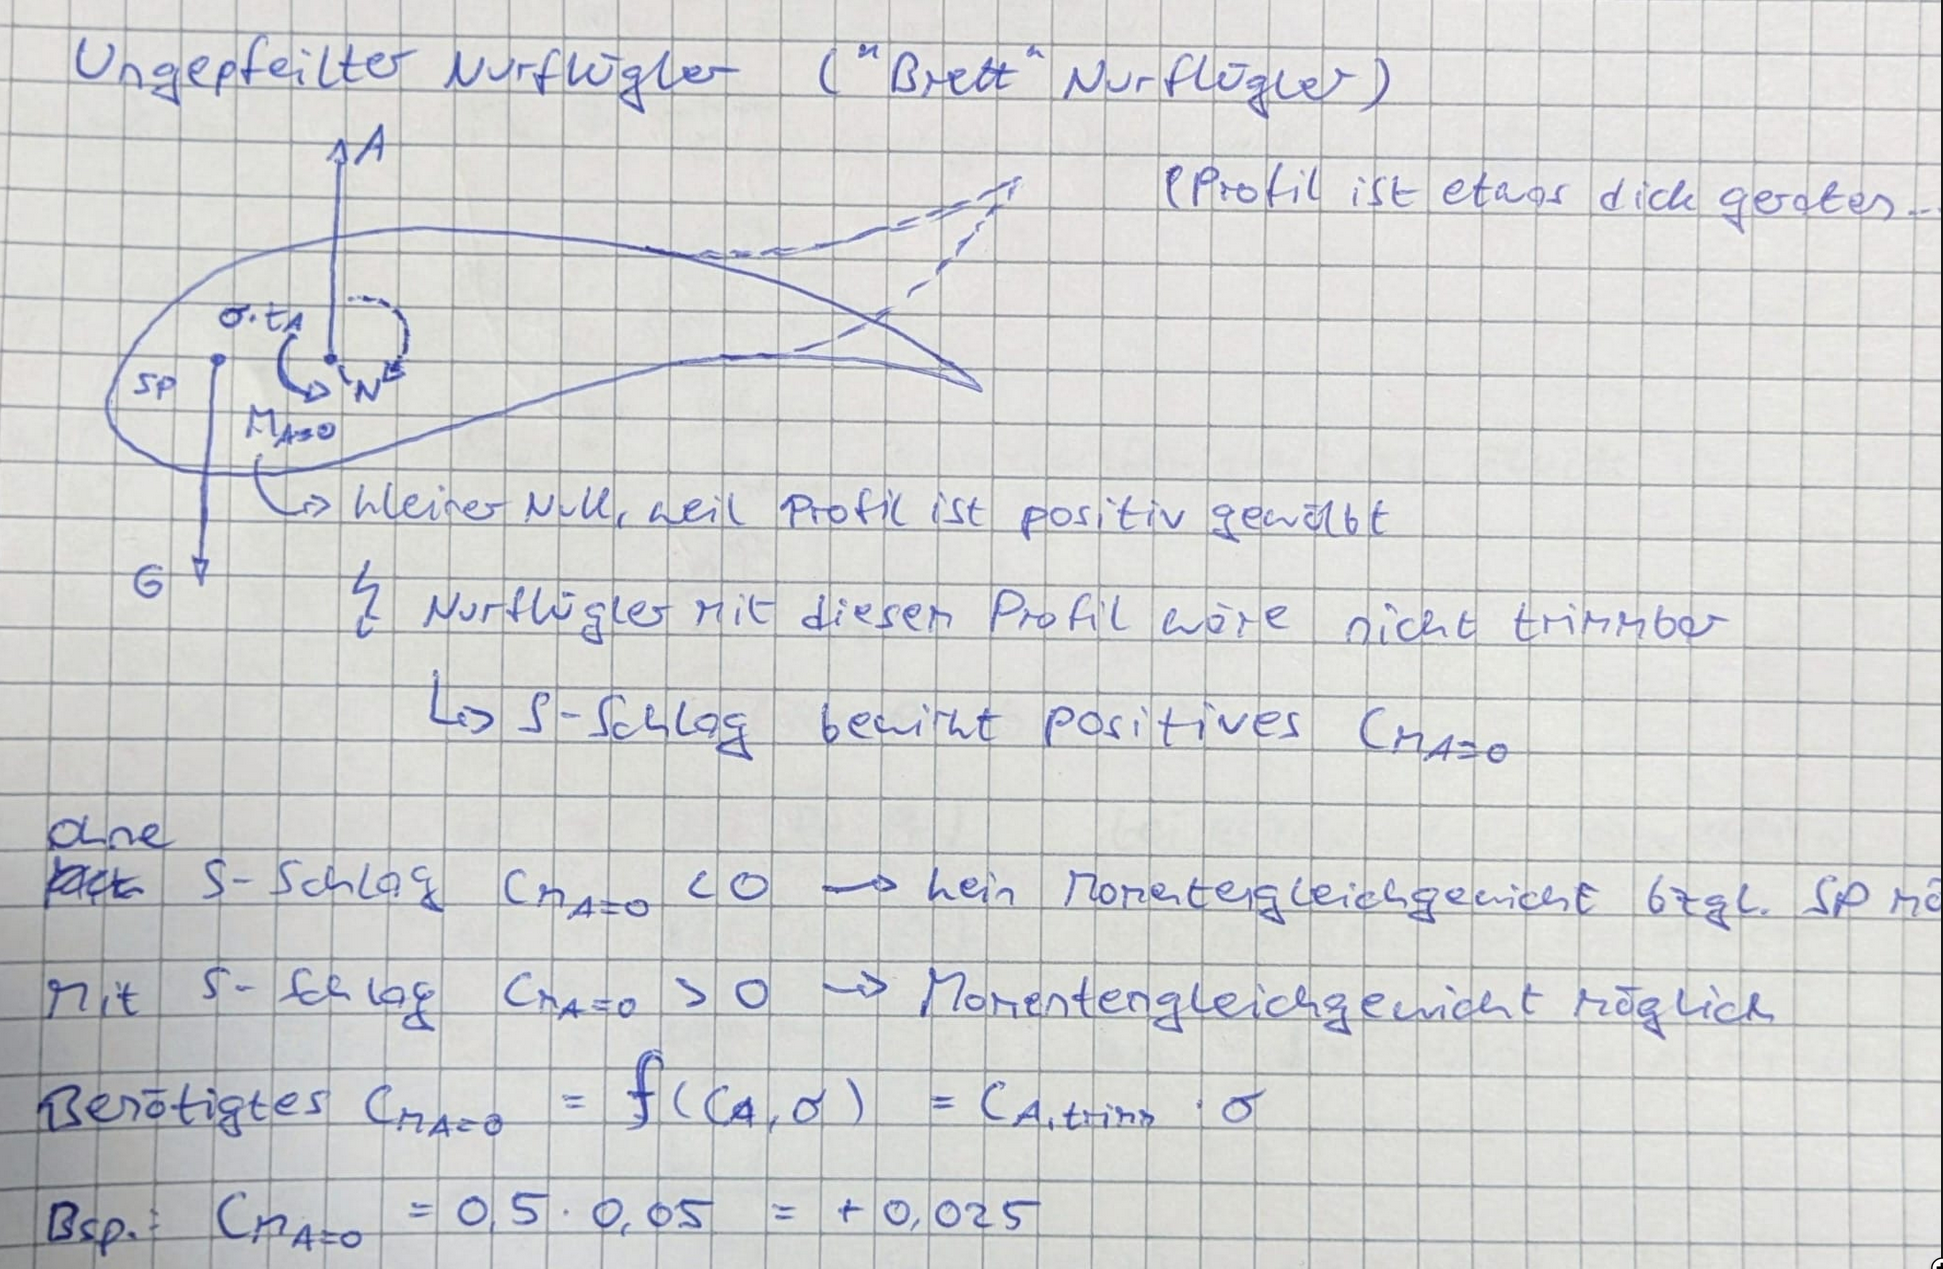 Ungepfeilter Nurflügler ("Brett" Nurflügler)
A
(Profil ist etwas dick geraten...
σ·tA
SP
N
M_A=0
↳ kleiner Null, weil Profil ist positiv gewölbt
G
↯ Nurflügler mit diesem Profil wäre nicht trimmbar
↳ S-Schlag bewirkt positives C_M_A=0
ohne
S-Schlag C_M_A=0 < 0 → kein Momentengleichgewicht bzgl. SP mö
Mit S-Schlag C_M_A=0 > 0 → Momentengleichgewicht möglich
Benötigtes C_M_A=0 = f(C_A, σ) = C_A,trimm · σ
Bsp.: C_M_A=0 = 0,5 · 0,05 = +0,025